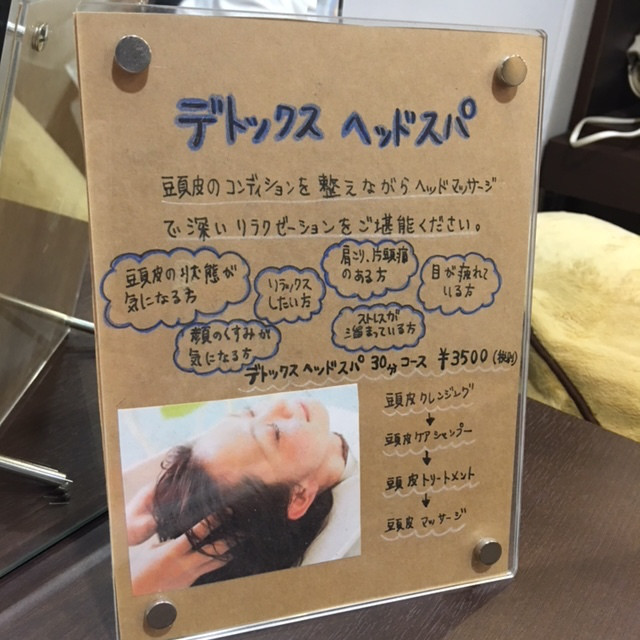 デトックス ヘッドスパ
頭皮のコンディションを整えながらヘッドマッサージ
で深いリラクゼーションをご堪能ください。
頭皮の状態が
気になる方
リラックス
したい方
肩こり、片頭痛
のある方
目が疲れて
いる方
顔のくすみが
気になる方
ストレスが
溜まっている方
デトックスヘッドスパ 30分コース ¥3500(税込)
頭皮クレンジング
↓
頭皮ケアシャンプー
↓
頭皮トリートメント
↓
頭皮マッサージ